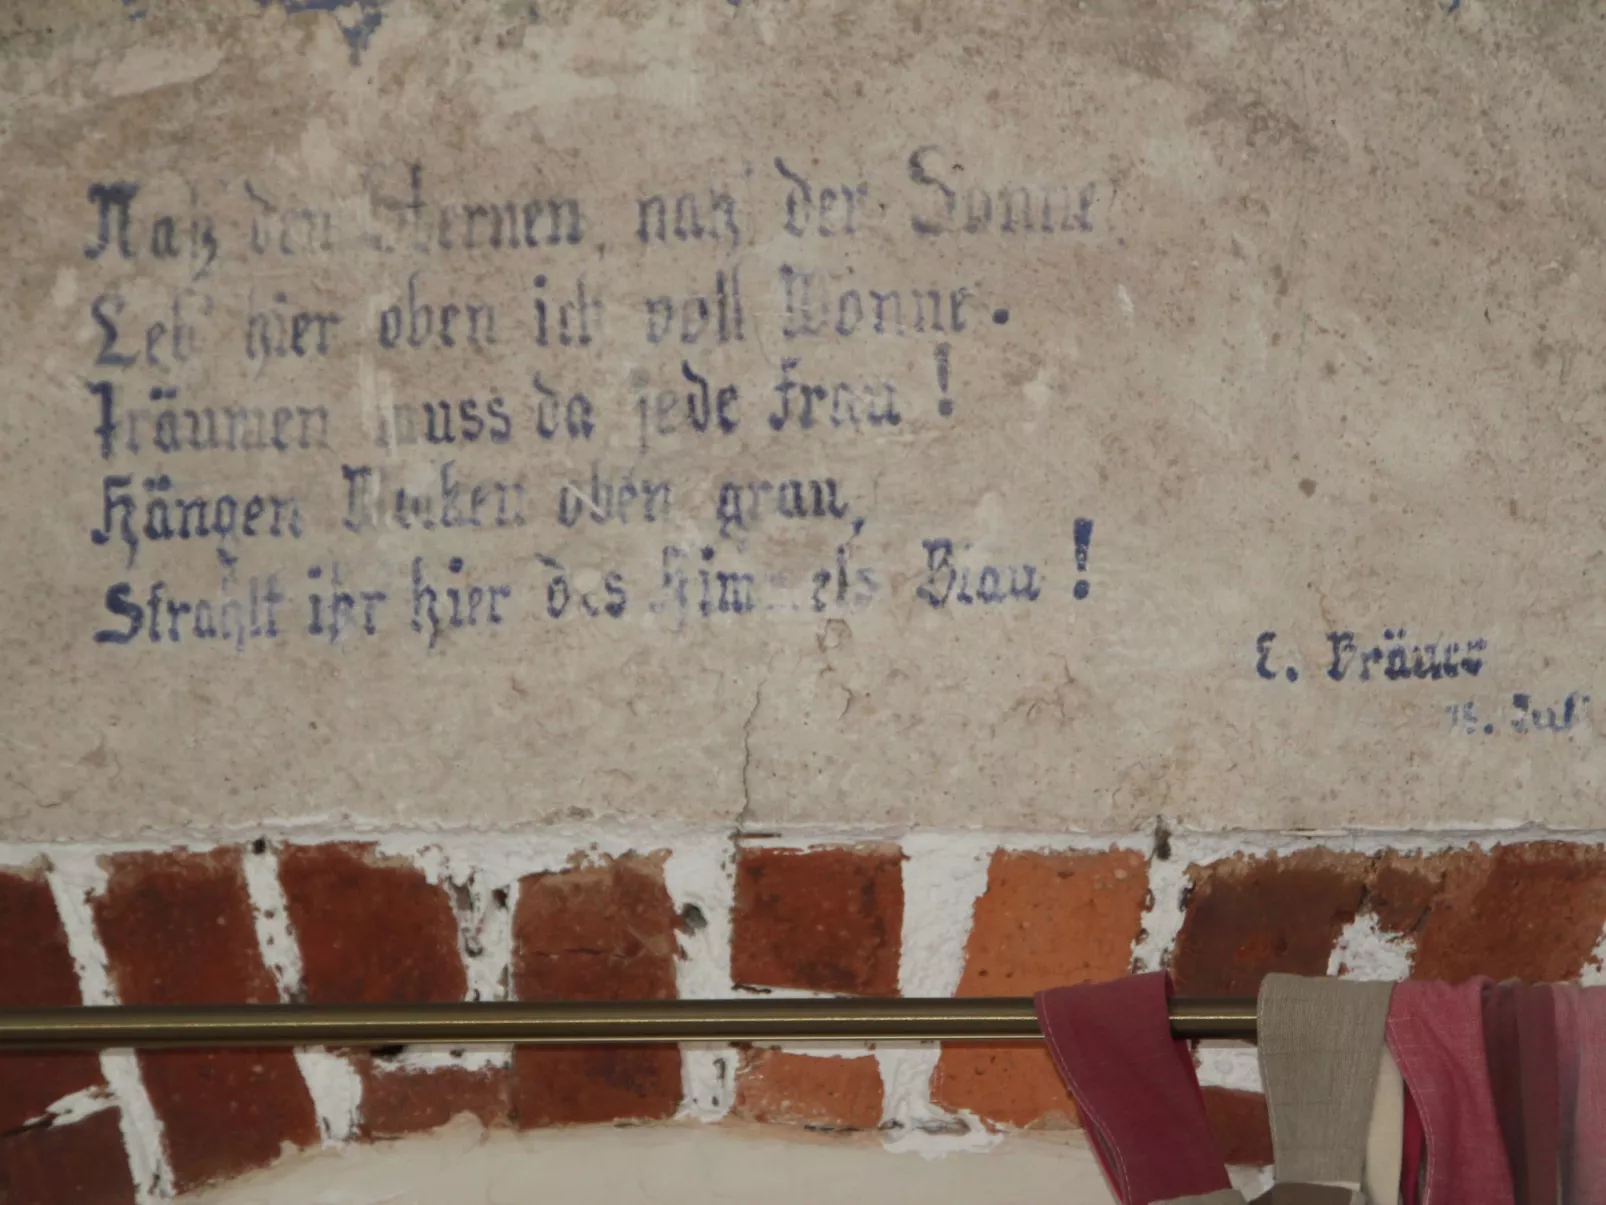 Nah den Sternen, nah der Sonne,
Leb' hier oben ich voll Wonne.
Träumen muss da jede Frau!
Hängen Wolken oben grau,
Strahlt ihr hier des Himmels Blau!
E. Bräuer
Juli